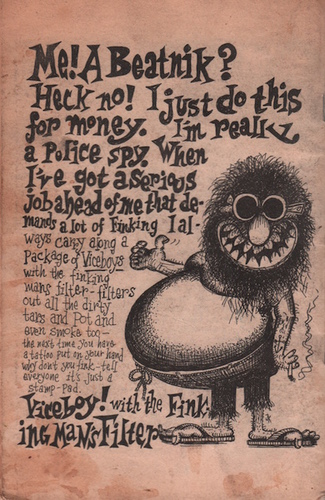 Me! A Beatnik?
Heck no! I just do this
for money. I'm really
a Police spy. When
I've got a serious
Job ahead of me that de-
mands a lot of Finking I al-
ways carry along a
Package of Viceboys
with the finking
mans filter-filters
out all the dirty
tars and Pot and
even smoke too—
the next time you have
a tattoo put on your hand
why don't you fink-tell
everyone it's just a
stamp-pad.
Viceboy! with the Fink-
ing MANS Filter